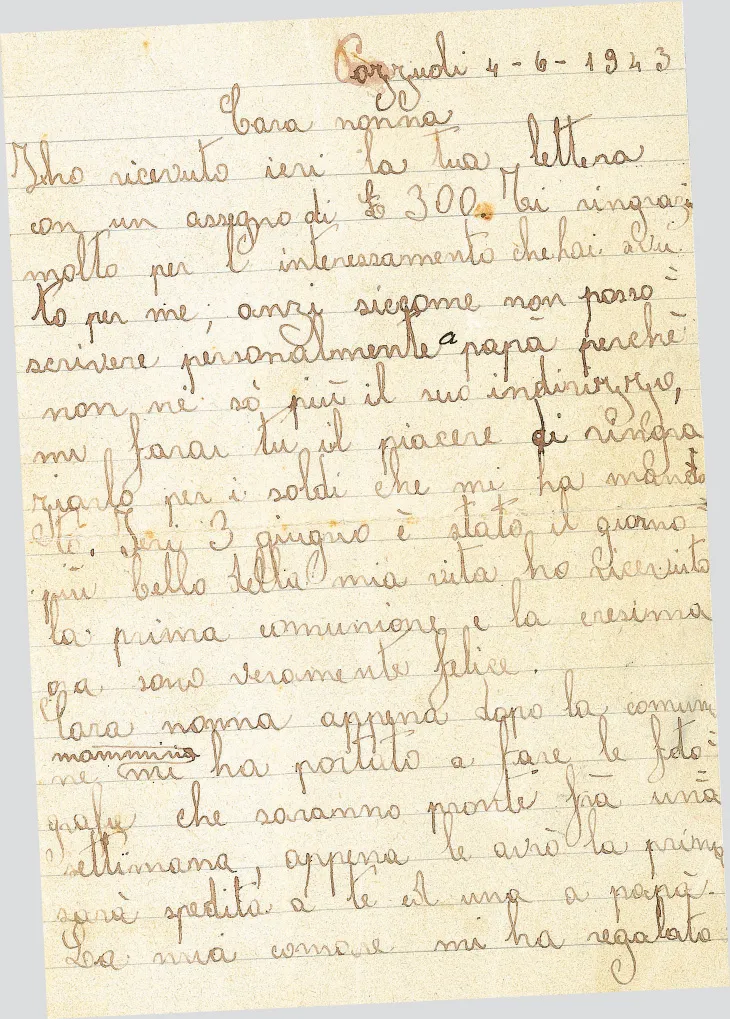 Pozzuoli 4-6-1943
Cara nonna
Iho ricevuto ieri la tua lettera
con un assegno di £ 300. Ti ringrazi
molto per l' interessamento che hai avu
to per me, anzi siccome non posso=
scrivere personalmente a papà perchè
non ne sò più il suo indirizzo,
mi farai tu il piacere di ringra
ziarlo per i soldi che mi ha manda
to. Ieri 3 giugno è stato il giorno=
più bello della mia vita ho ricevuto
la prima comunione e la cresima
ora sono veramente felice.
Cara nonna appena dopo la comuni
mammina
ne mi ha portato a fare le foto=
grafie che saranno pronte frà una
settimana, appena le avrò la prima
sarà spedita a te ed una a papà.
La mia comare mi ha regalato